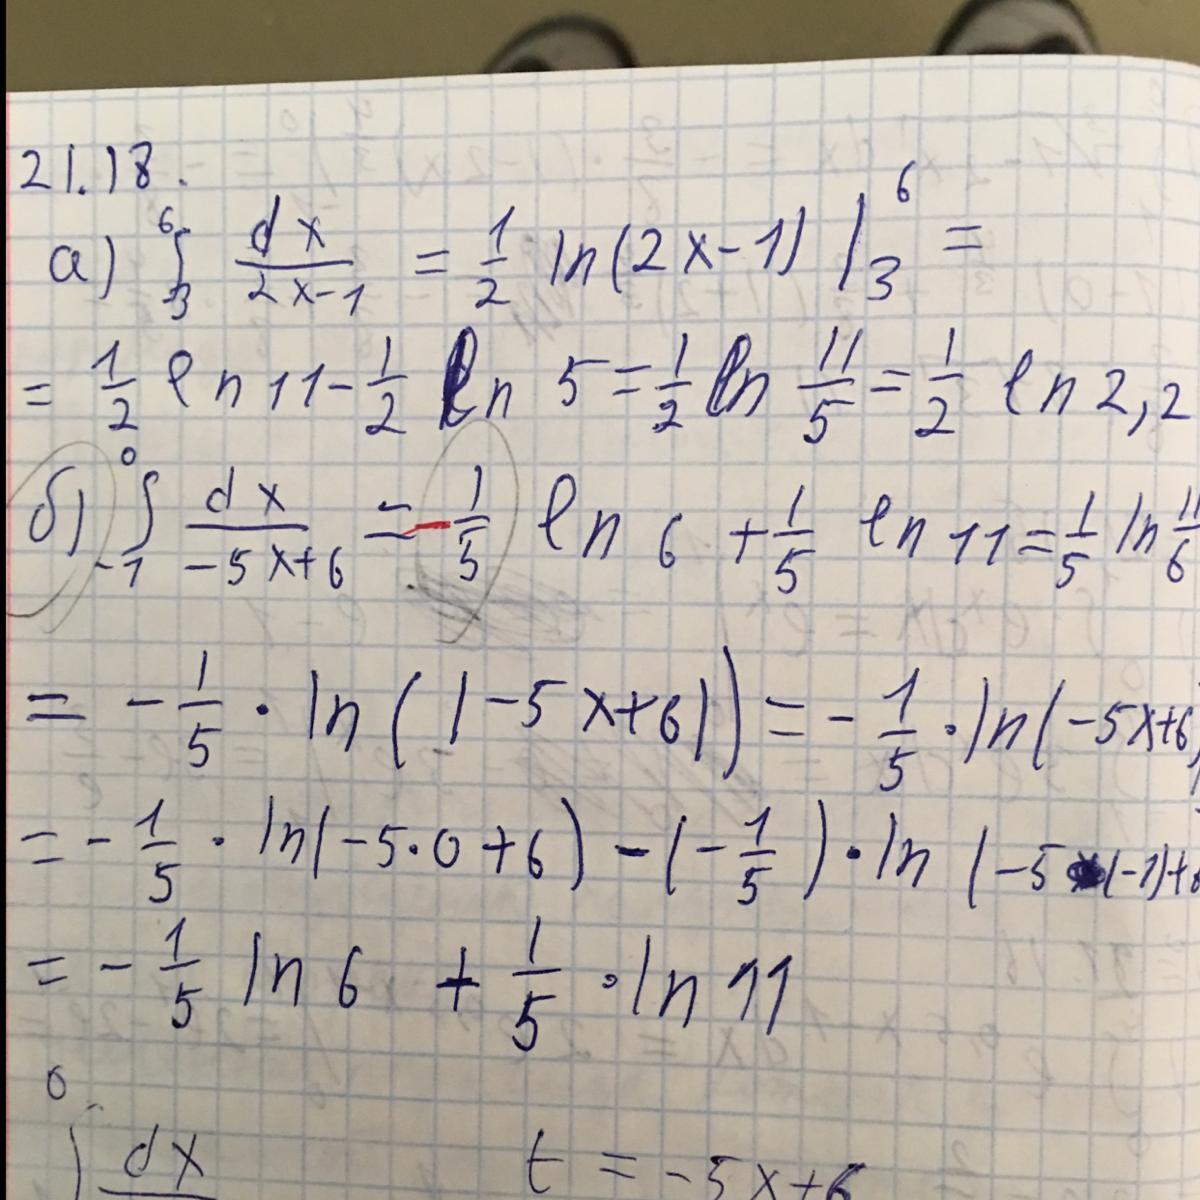 21.18.
а) ∫₃⁶ dx/(2x-1) = 1/2 ln(2x-1) |₃⁶ =
= 1/2 ln 11 - 1/2 ln 5 = 1/2 ln 11/5 = 1/2 ln 2,2
б) ∫₋₁⁰ dx/(-5x+6) = -1/5 ln 6 + 1/5 ln 11 = 1/5 ln 11/6
= -1/5 · ln(|-5x+6|) = -1/5 · ln(-5x+6)
= -1/5 · ln(-5·0+6) - (-1/5) · ln(-5·(-1)+6
= -1/5 ln 6 + 1/5 · ln 11
∫⁰ dx t = -5x+6